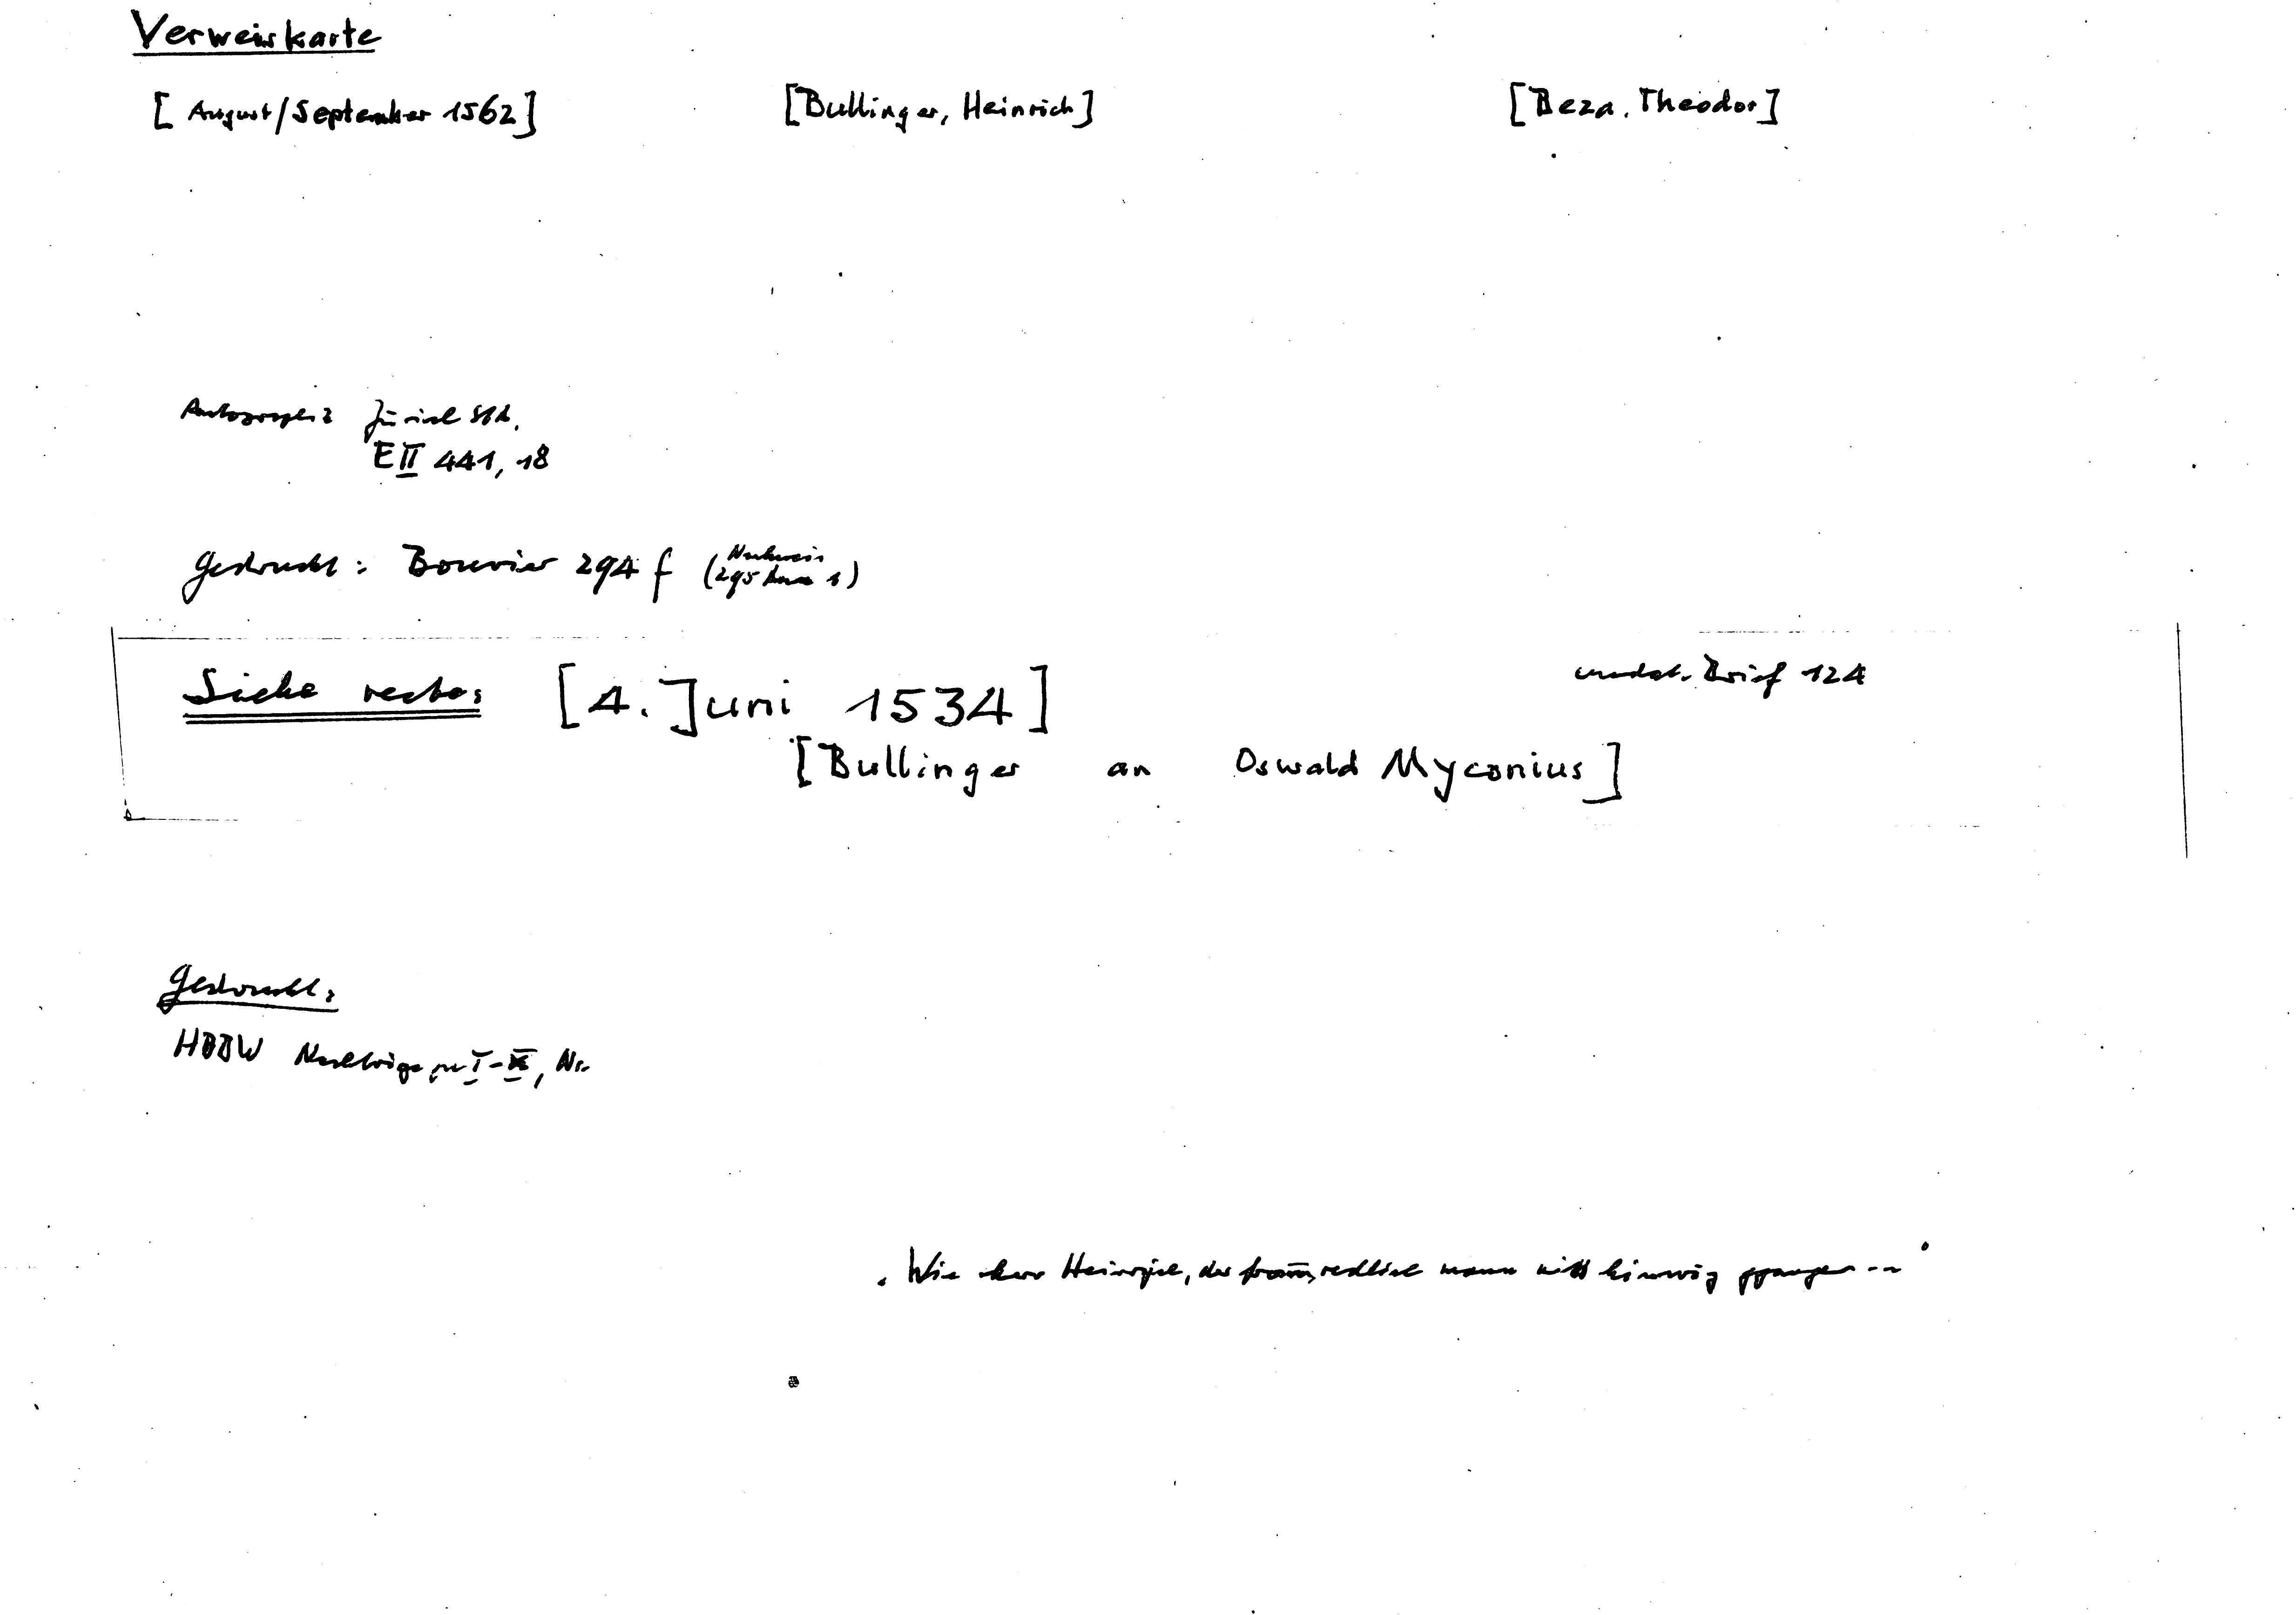 Verweiskarte
[August/September 1562] [Bullinger, Heinrich] [Beza, Theodor]
Autograph: Zürich StA,
E II 441, 18
Gedruckt: Bouvier 294 f (Nachweis
295 Anm 1)
Siehe recto: [4. Juni 1534] undat. Brief 124
[Bullinger an Oswald Myconius]
Gedruckt:
HBBW Nachträge zu I-IX, Nr.
"Wie herr Heinrych, der fromm, redlich mann mitt hinwäg gangen --"